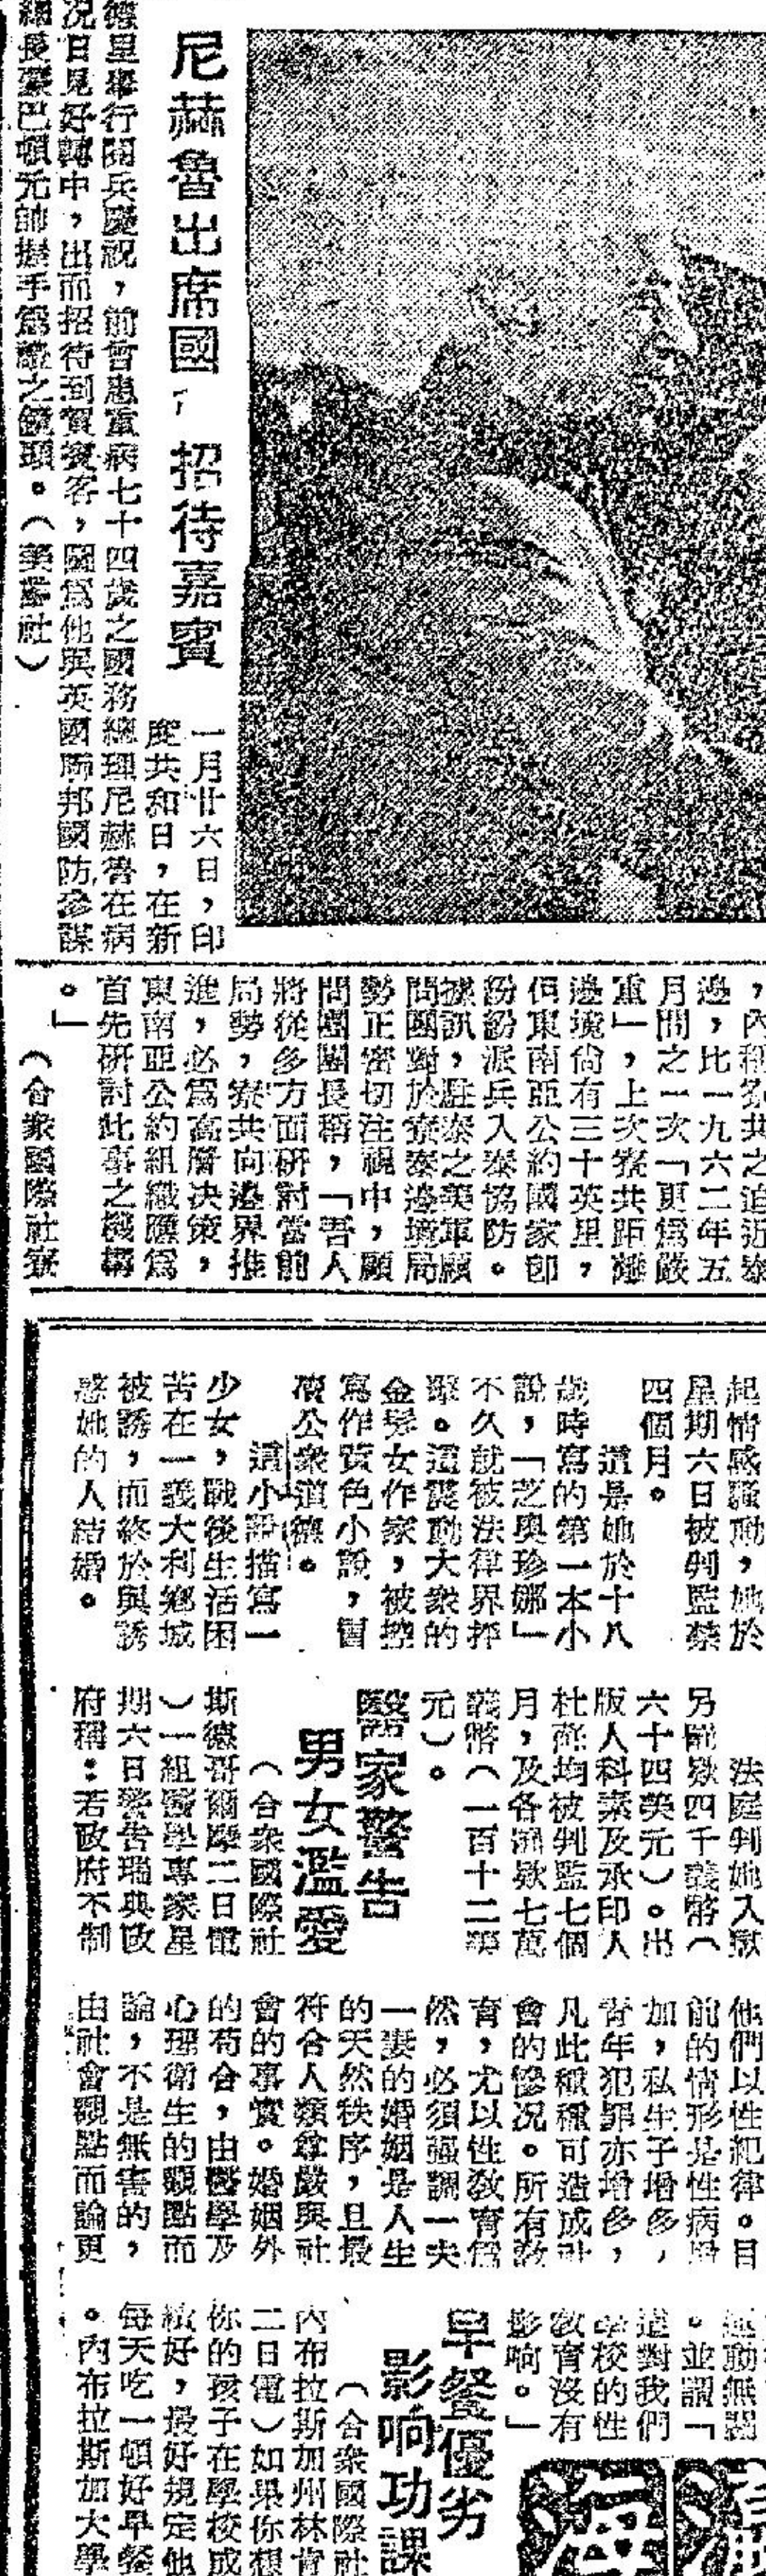 尼赫魯出席國
招待嘉賓
一月廿六日，印
度共和日，在新
德里舉行閱兵慶祝，前曾患重病七十四歲之國務總理尼赫魯在病
況日見好轉中，出而招待到賀賓客，圖爲他與英國聯邦國防參謀
總長蒙巴頓元帥握手爲禮之鏡頭。（美聯社）
邊，比一九六二年五
月間之一次「更爲嚴
重」，上次寮共距離
邊境尙有三十英里，
但東南亞公約國家卽
紛紛派兵入泰協防。
據訊，駐泰之美軍顧
問團對於寮泰邊境局
勢正密切注視中，顧
問團團長稱，「吾人
將從多方面研討當前
局勢，寮共向邊界推
進，必爲高層決策，
東南亞公約組織應爲
首先硏討此事之機構
。」
（合衆國際社寮
起情感騷動，她於
星期六日被判監禁
四個月。
這是她於十八
歲時寫的第一本小
說，「芝與珍娜」
不久就被法律界抨
擊。這震動大衆的
金髮女作家，被控
寫作黃色小說，冒
凟公衆道德。
這小說描寫一
少女，戰後生活困
苦在一義大利鄉城
被誘，而終於與誘
惑她的人結婚。
法庭判她入獄
另罰欵四千義幣（
六十四美元）。出
版人科素及承印人
杜商均被判監七個
月，及各罰欵七萬
義幣（一百十二美
元）。
醫家警告
男女濫愛
（合衆國際社
斯德哥爾摩二日電
）一組醫學專家星
期六日警告瑞典政
府稱：若政府不制
他們以性犯律。目
前的情形是性病增
加，私生子增多，
靑年犯罪亦增多，
凡此種種可造成社
會的慘况。所有敎
育，尤以性敎育爲
然，必須强調一夫
一妻的婚姻是人生
的天然秩序，且最
符合人類尊嚴與社
會的事實。婚姻外
的苟合，由醫學及
心理衛生的觀點而
論，不是無害的，
由社會觀點而論更
運動無關
。並謂「
這對我們
學校的性
敎育沒有
影响。」
早餐優劣
影响功課
（合衆國際社
內布拉斯加州林肯
二日電）如果你想
你的孩子在學校成
績好，最好規定他
每天吃一頓好早餐
。內布拉斯加大學